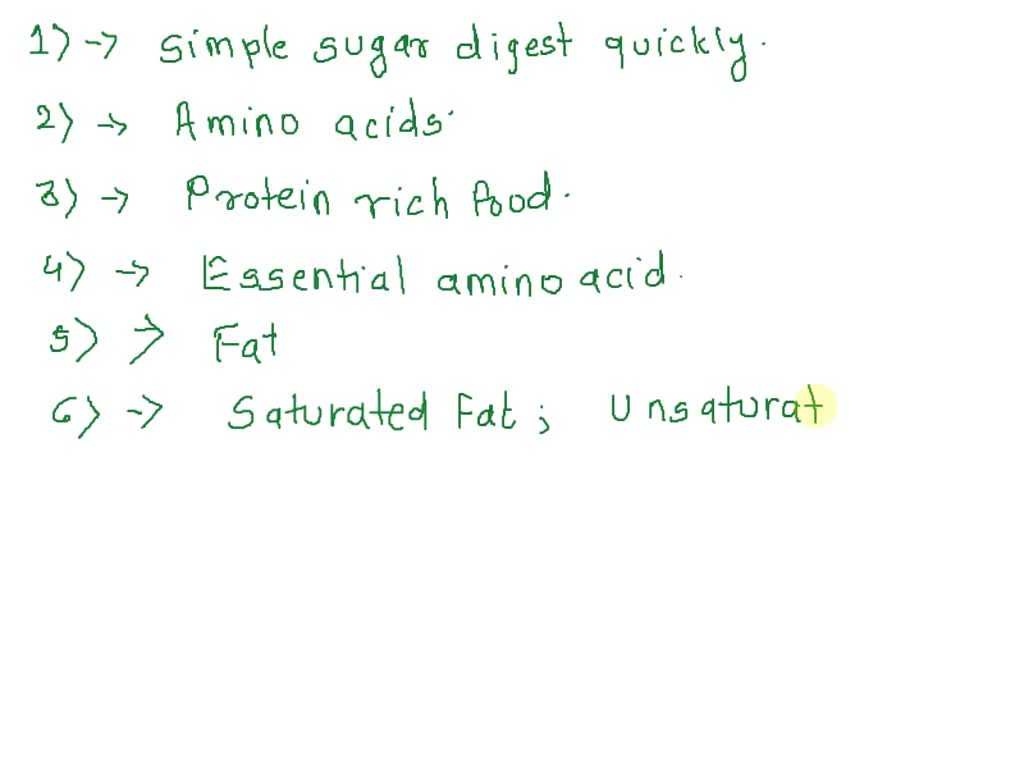 1) → simple sugar digest quickly.
2) → Amino acids.
3) → Protein rich food.
4) → Essential amino acid.
5) → Fat
6) → Saturated Fat; Unsaturat